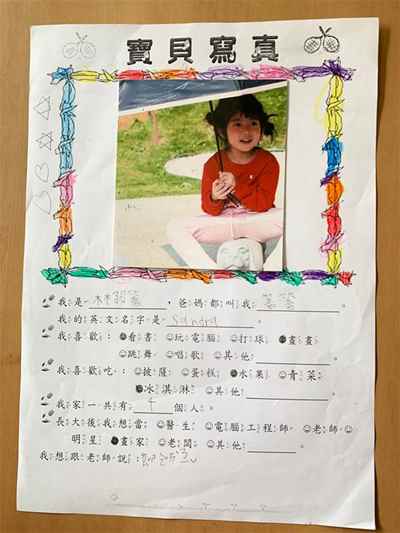 寶貝寫真
我是 林 ，爸媽都叫我 。
我的英文名字是 Sandra 。
我喜歡：看書 玩電腦 打球 畫畫
跳舞 唱歌 其他 。
我喜歡吃：披薩 蛋糕 水果 青菜
冰淇淋 其他 。
我家一共有 4 個人。
長大後我想當：醫生 電腦工程師 老師
明星 畫家 老闆 其他 。
我想跟老師說：